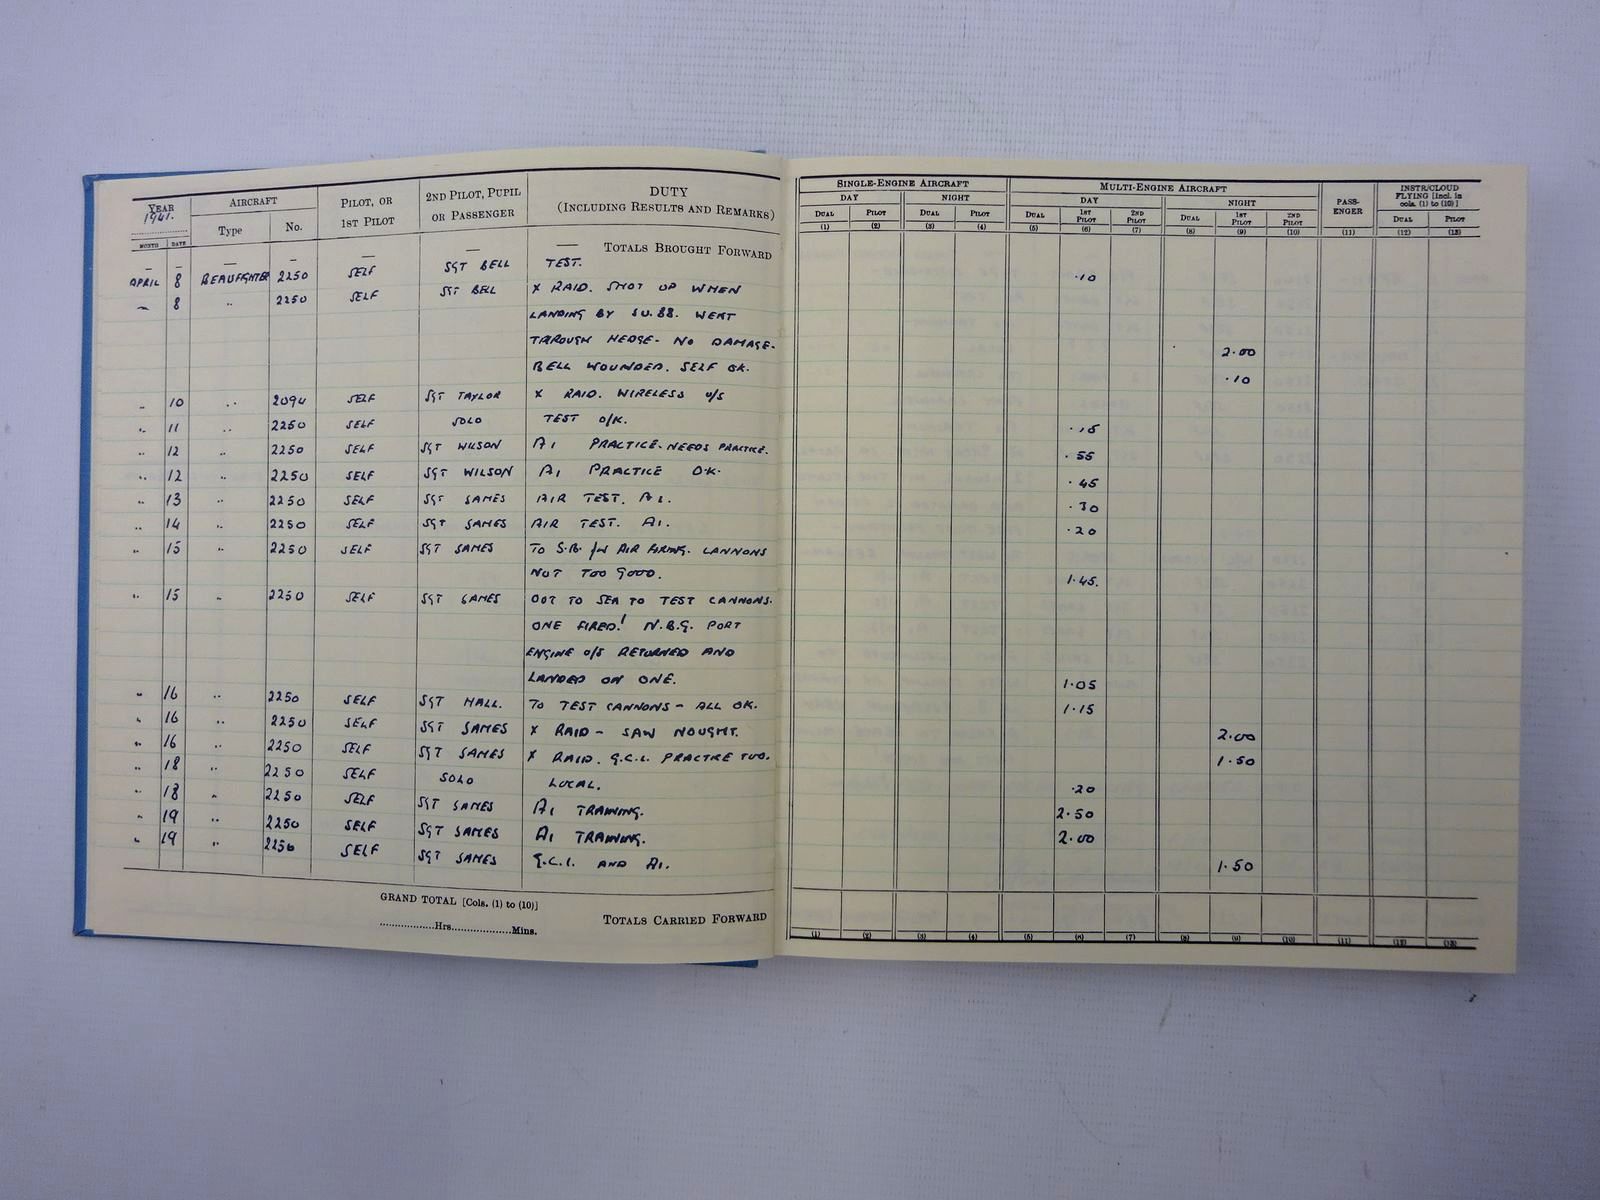 YEAR AIRCRAFT PILOT, OR 2ND PILOT, PUPIL DUTY
1941. Type No. 1ST PILOT OR PASSENGER (INCLUDING RESULTS AND REMARKS)
MONTH DATE
— — — — — — — TOTALS BROUGHT FORWARD
APRIL 8 BEAUFIGHTER 2250 SELF SGT BELL TEST.
" 8 " 2250 SELF SGT BELL X RAID. SHOT UP WHEN
LANDING BY JU.88. WENT
THROUGH HEDGE- NO DAMAGE-
BELL WOUNDED. SELF OK.
" 10 " 2094 SELF SGT TAYLOR X RAID. WIRELESS U/S
" 11 " 2250 SELF SOLO TEST O/K.
" 12 " 2250 SELF SGT WILSON A1 PRACTICE. NEEDS PRACTICE.
" 12 " 2250 SELF SGT WILSON A1 PRACTICE O.K.
" 13 " 2250 SELF SGT SAMES AIR TEST. A1.
" 14 " 2250 SELF SGT SAMES AIR TEST. A1.
" 15 " 2250 SELF SGT SAMES TO S.B. for AIR FIRING. CANNONS
NOT TOO GOOD.
" 15 " 2250 SELF SGT SAMES OUT TO SEA TO TEST CANNONS.
ONE FIRED! N.B.G. PORT
ENGINE O/S RETURNED AND
LANDED ON ONE.
" 16 " 2250 SELF SGT HALL. TO TEST CANNONS - ALL OK.
" 16 " 2250 SELF SGT SAMES X RAID - SAW NOUGHT.
" 16 " 2250 SELF SGT SAMES X RAID. G.C.I. PRACTICE TOO.
" 18 " 2250 SELF SOLO LOCAL.
" 18 " 2250 SELF SGT SAMES A1 TRAINING.
" 19 " 2250 SELF SGT SAMES A1 TRAINING.
" 19 " 2250 SELF SGT SAMES G.C.I. AND A1.
GRAND TOTAL [Cols. (1) to (10)]
..................Hrs...................Mins.
TOTALS CARRIED FORWARD
SINGLE-ENGINE AIRCRAFT MULTI-ENGINE AIRCRAFT PASS-ENGER INSTR/CLOUD FLYING [Incl. in cols. (1) to (10)]
DAY NIGHT DAY NIGHT
DUAL PILOT DUAL PILOT DUAL 1ST PILOT 2ND PILOT DUAL 1ST PILOT 2ND PILOT DUAL PILOT
(1) (2) (3) (4) (5) (6) (7) (8) (9) (10) (11) (12) (13)
.10
2.00
.10
.15
.55
.45
.30
.20
1.45.
1.05
1.15
2.00
1.50
.20
2.50
2.00
1.50
(1) (2) (3) (4) (5) (6) (7) (8) (9) (10) (11) (12) (13)